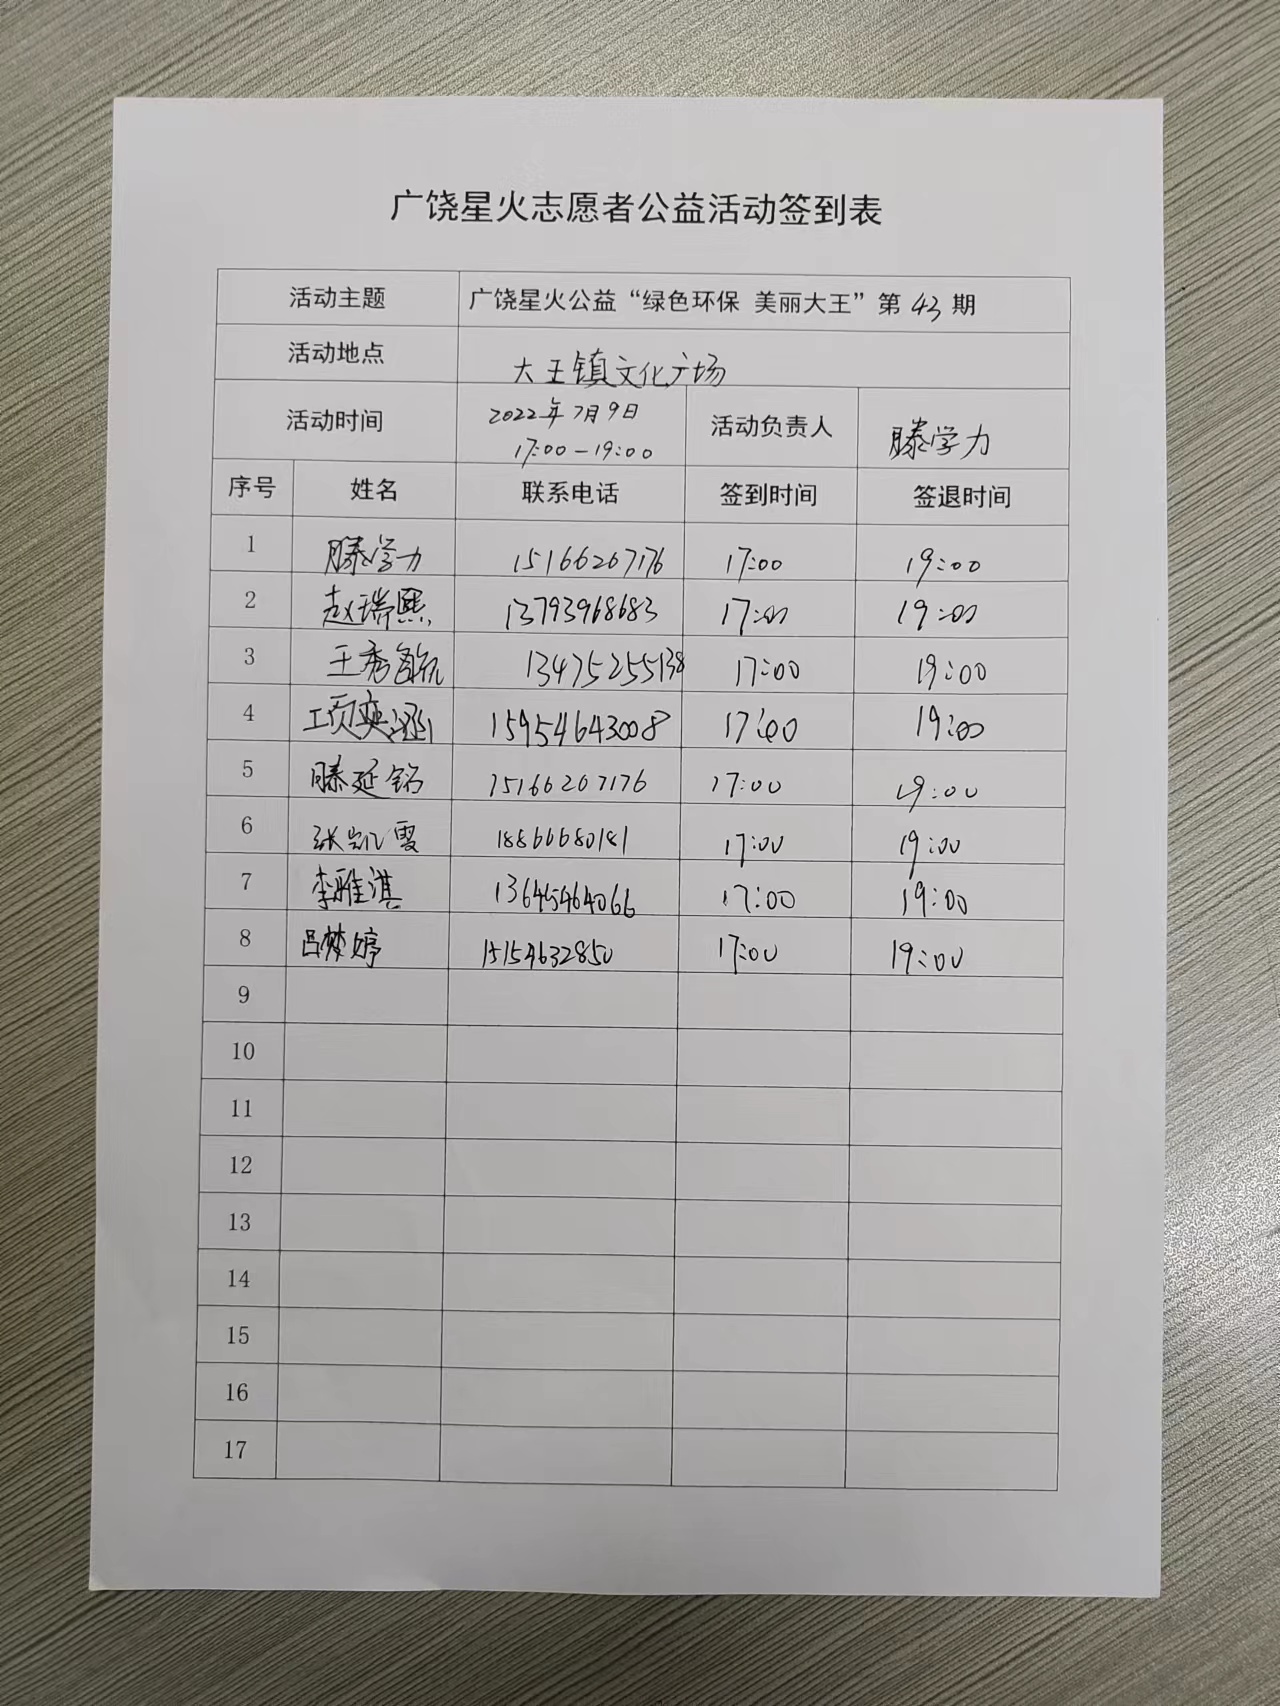 广饶星火志愿者公益活动签到表
活动主题 广饶星火公益“绿色环保 美丽大王”第 43 期
活动地点 大王镇文化广场
活动时间 2022年7月9日 17:00-19:00 活动负责人 滕学力
序号 姓名 联系电话 签到时间 签退时间
1 滕学力 15166207176 17:00 19:00
2 赵瑞熙 13793968683 17:00 19:00
3 王秀 13475255138 17:00 19:00
4 15954643008 17:00 19:00
5 滕延铭 15166207176 17:00 19:00
6 张凯雯 18866680181 17:00 19:00
7 李雅淇 13645464066 17:00 19:00
8 吕梦婷 15154632850 17:00 19:00
9
10
11
12
13
14
15
16
17